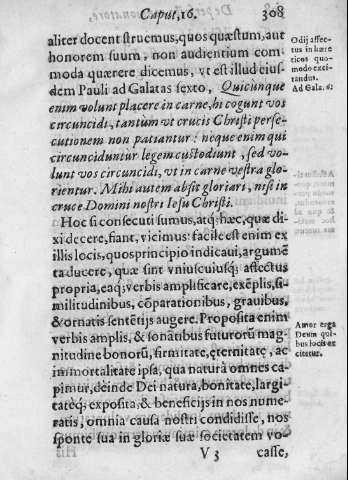 Caput, 16. 308
aliter docent struemus, quos quæstum, aut
honorem suum, non audientium com-
moda quærere dicemus, vt est illud eius-
dem Pauli ad Galatas sexto, Quicunque
enim volunt placere in carne, hi cogunt vos
circuncidi, tantùm vt crucis Christi perse-
cutionem non patiantur: neque enim qui
circunciduntur legem custodiunt, sed vo-
lunt vos circuncidi, vt in carne vestra glo-
rientur. Mihi autem absit gloriari, nisi in
cruce Domini nostri Iesu Christi.
Hoc si consecuti sumus, atq; hæc, quæ di-
xi decere, fiant, vicimus: facile est enim ex
illis locis, quos principio indicaui, argumẽ
ta ducere, quæ sint vniuscuiusq; affectus
propria, eaq; verbis amplificare, exẽplis, si-
militudinibus, cõparationibus, grauibus,
& ornatis sentẽtijs augere. Proposita enim
verbis amplis, & sonãtibus futurorũ mag-
nitudine bonorũ, firmitate, æternitate, ac
immortalitate ipsa, qua natura omnes ca-
pimur, deinde Dei natura, bonitate, largi-
tateq; exposita, & beneficijs in nos nume-
ratis, omnia causa nostri condidisse, nos
sponte sua in gloriæ suæ societatem vo-
V 3 casse,
Odij affec-
tus in hære
ticos quo-
modo exci-
tandus.
Ad Gala. 6.
Amor erga
Deum qui-
bus locis ex
citetur.